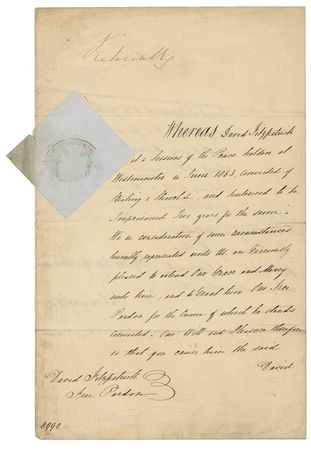 Victoria R
Whereas David Fitzpatrick
at a Session of the Peace holden at
Westminster in June 1853, convicted of
Stealing a Shovel, and sentenced to be
Imprisoned Two years for the same.
We in consideration of some circumstances
humbly represented unto Us, are Graciously
pleased to extend Our Grace and Mercy
unto him, and to Grant him Our Free
Pardon for the Crime of which he stands
convicted. Our Will and Pleasure therefore
is that you cause him the said
David
David Fitzpatrick
Free Pardon
8990